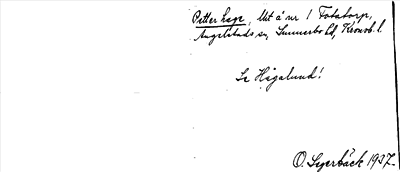 Petter hage, Urt å nr 1 Totatorp,
Angelstads sn, Sunnerbo hd, Kronob. l.
Se Hågalund!
O. Segerbäck 1937.